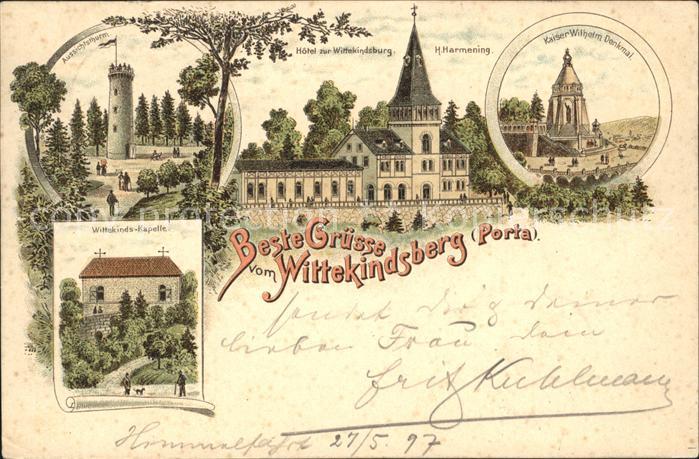 Aussichtsthurm.
Hôtel zur Wittekindsburg. H. Harmening.
Kaiser Wilhelm Denkmal.
Wittekinds-Kapelle.
Beste Grüsse
vom Wittekindsberg (Porta).
sendet Dir & Deiner
lieben Frau Dein
Fritz Kuhlmann
Himmelfahrt 27/5. 97